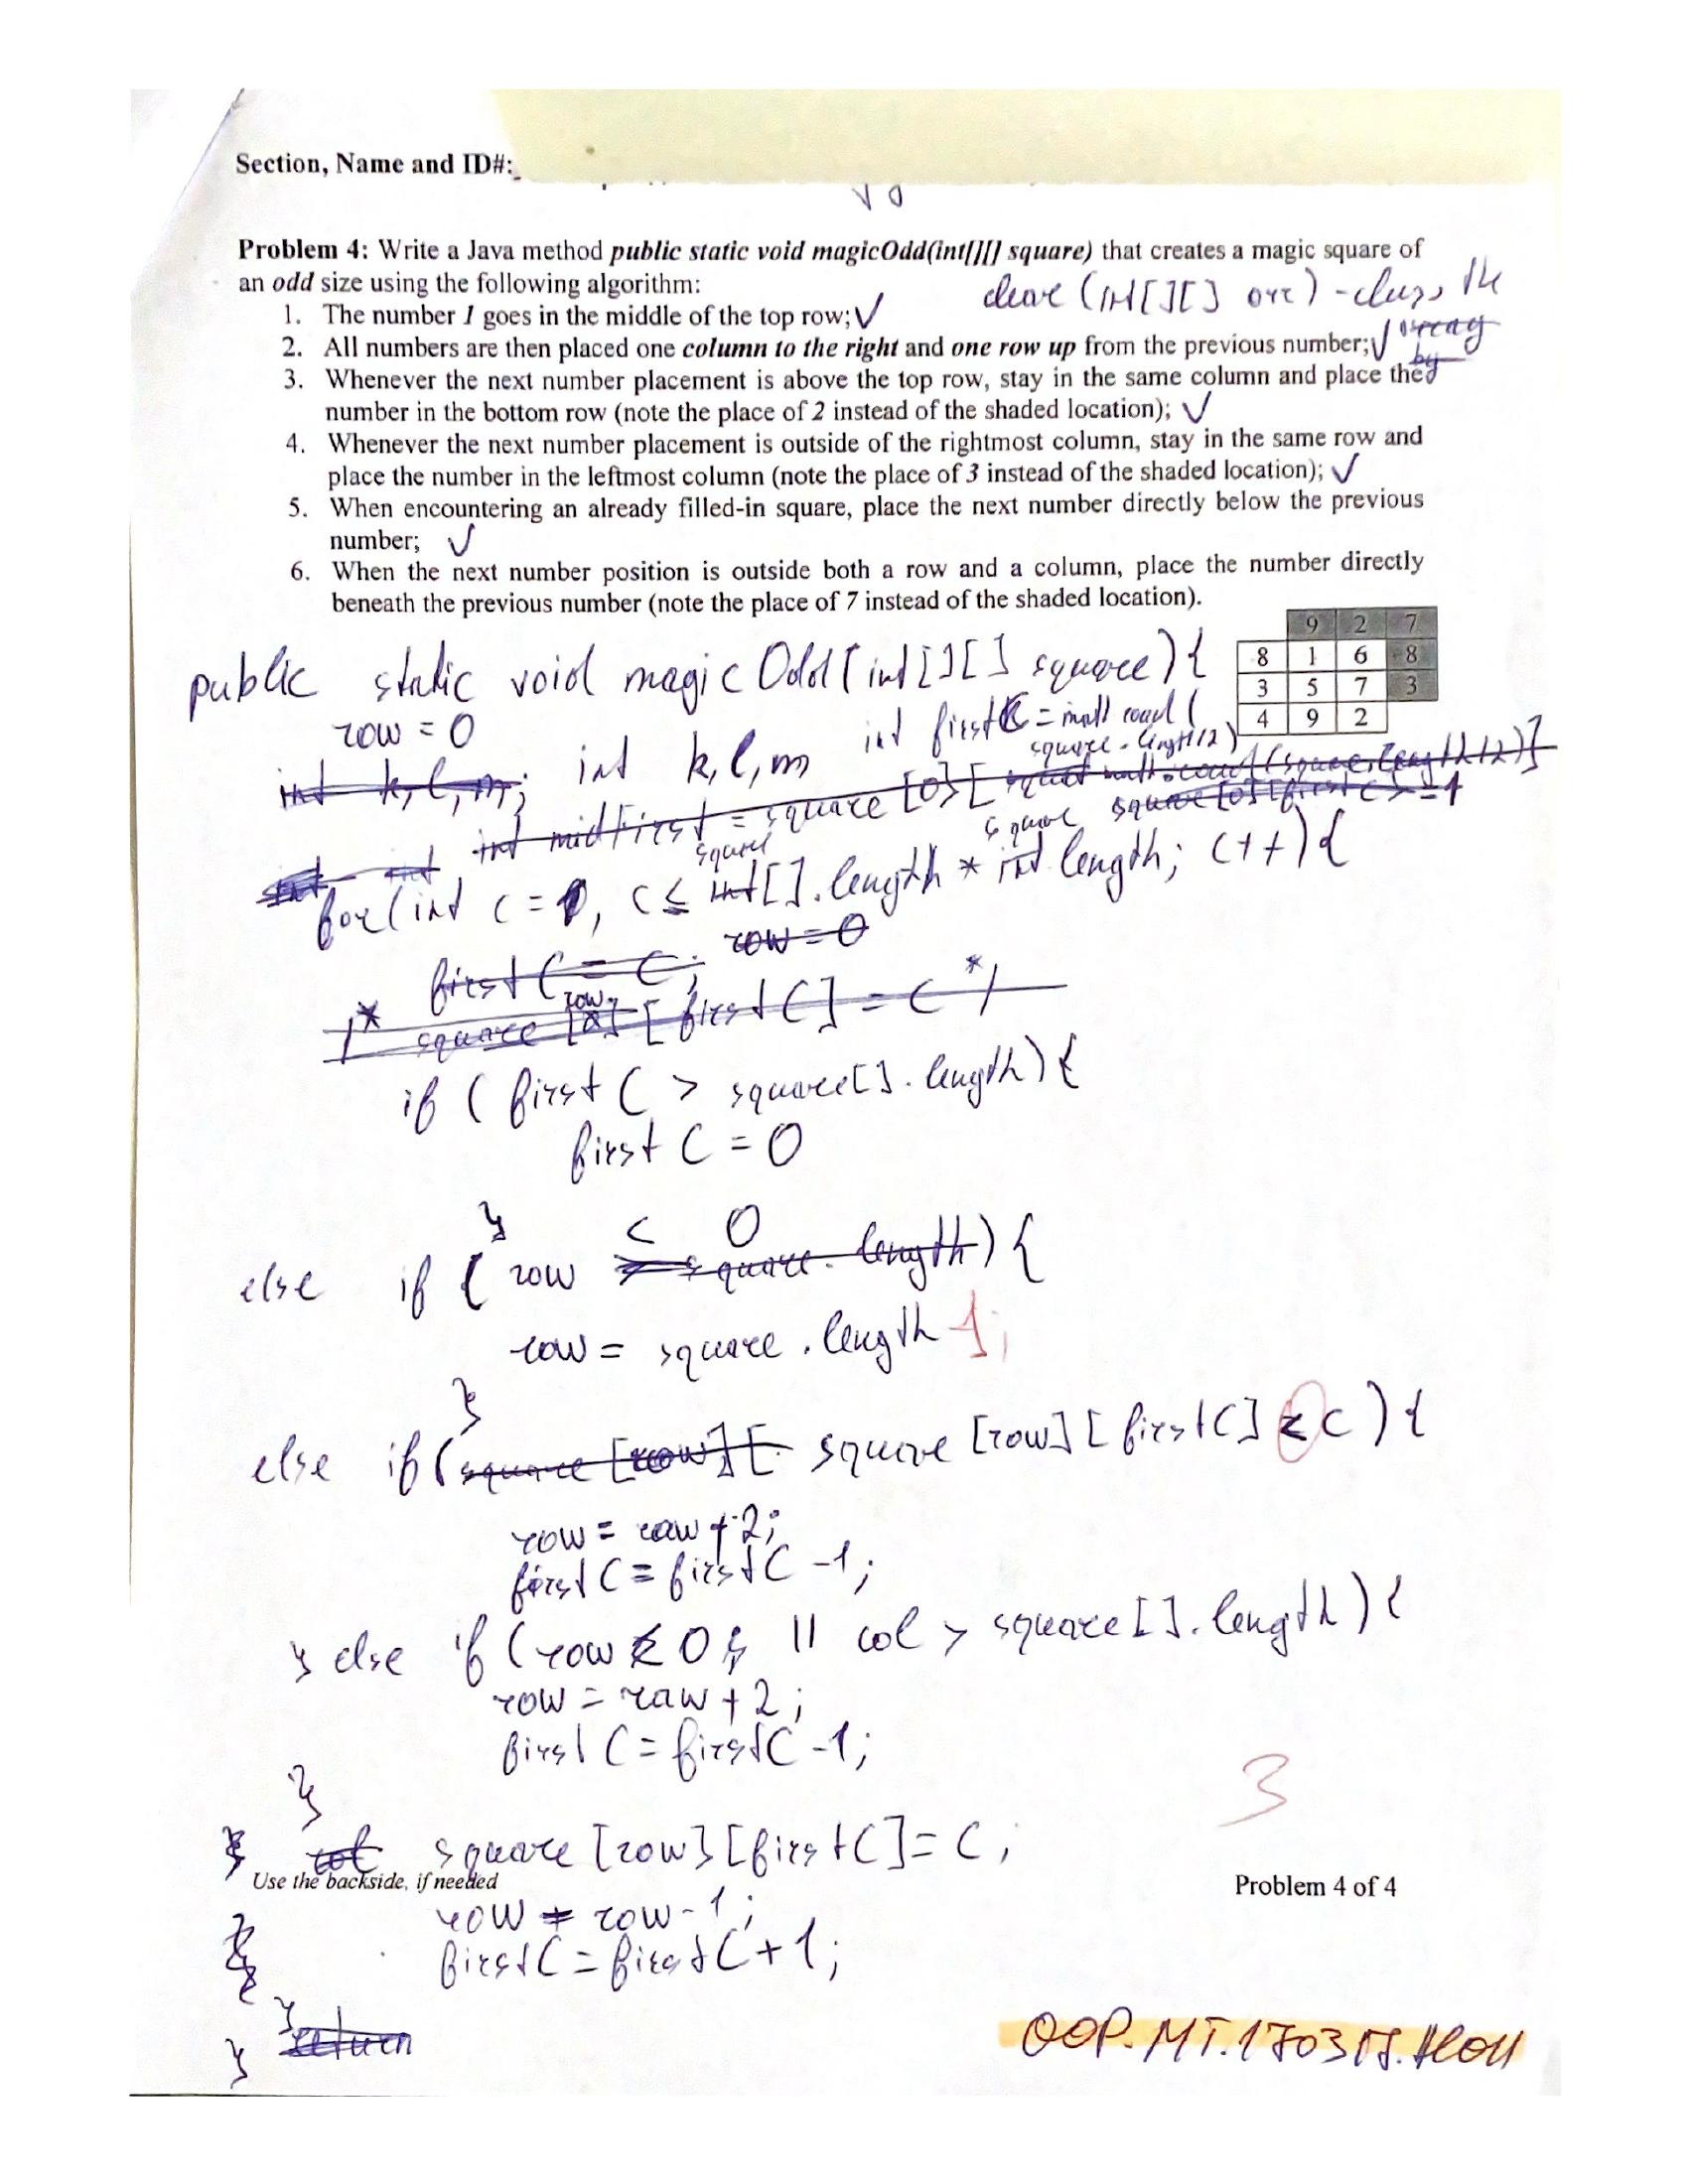 Section, Name and ID#:
Problem 4: Write a Java method public static void magicOdd(int[][] square) that creates a magic square of
an odd size using the following algorithm:
1. The number 1 goes in the middle of the top row; ✓
2. All numbers are then placed one column to the right and one row up from the previous number; ✓
3. Whenever the next number placement is above the top row, stay in the same column and place the
number in the bottom row (note the place of 2 instead of the shaded location); ✓
4. Whenever the next number placement is outside of the rightmost column, stay in the same row and
place the number in the leftmost column (note the place of 3 instead of the shaded location); ✓
5. When encountering an already filled-in square, place the next number directly below the previous
number; ✓
6. When the next number position is outside both a row and a column, place the number directly
beneath the previous number (note the place of 7 instead of the shaded location).
9 2 7
8 1 6 8
3 5 7 3
4 9 2
public static void magicOdd(int[][] square){
row = 0
int k,l,m; int k,l,m int firstC = math.round(
square.length/2)
int midFirst = square[0][
square[0][firstC] = 1
for(int c = 1, c ≤ square[].length * square length; c++){
firstC = c; row = 0
/* square [row] [firstC] = c */
if (firstC > square[].length){
firstC = 0
}
else if (row < 0 square.length){
row = square.length-1;
}
else if(square [row][ square [row][firstC] < c){
row = raw+2;
firstC = firstC -1;
} else if (row < 0 || col > square[].length){
row = raw + 2;
firstC = firstC -1;
}
3
col square [row][firstC] = c;
Use the backside, if needed
Problem 4 of 4
row = row-1;
firstC = firstC+1;
}
} return
OOP.MT.170315.